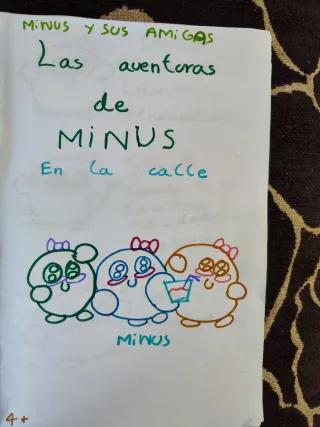 MiNUS Y SUS AMIGAS
Las aventuras
de
MiNUS
En la calle
MiNUS
4+